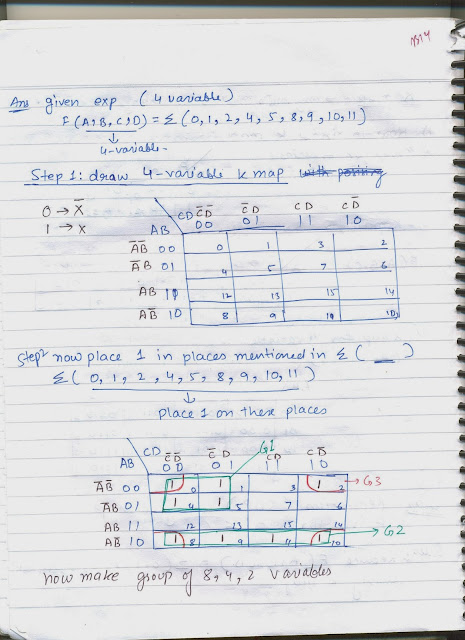 Ans given exp (4 variable)
F(A,B,C,D) = Σ(0,1,2,4,5,8,9,10,11)
↓
4-variable.
Step 1: draw 4-variable k map with
0 → X̅
1 → X
CD C̅D̅ C̅D CD CD̅
AB 00 01 11 10
A̅B̅ 00 0 1 3 2
A̅B 01 4 5 7 6
AB 11 12 13 15 14
AB̅ 10 8 9 11 10
Step2 now place 1 in places mentioned in Σ( __ )
Σ(0,1,2,4,5,8,9,10,11)
↓
place 1 on these places
G1
CD C̅D̅ C̅D CD CD̅
AB 00 01 11 10
A̅B̅ 00 1 0 1 1 3 1 2 → G3
A̅B 01 1 4 1 5 7 6
AB 11 12 13 15 14
AB̅ 10 1 8 1 9 1 11 1 10 → G2
now make group of 8,4,2 variables